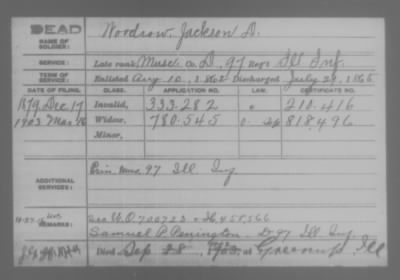 DEAD
NAME OF SOLDIER: Woodrow, Jackson D.
SERVICE: Late rank Music Co. D, 97 Reg't Ill Inf.
TERM OF SERVICE: Enlisted Aug 10, 1862 Discharged July 29, 1865
DATE OF FILING. CLASS. APPLICATION NO. LAW. CERTIFICATE NO.
1879 Dec 17 Invalid, 333.282 210.416
1903 Mar Widow, 780.545 818,496
Minor,
ADDITIONAL SERVICES: Prin Mus. 97 Ill Inf
REMARKS: W.O. 700723
Samuel P. Penington D 97 Ill. Inf.
Died Sep 28, at Greenup, Ill